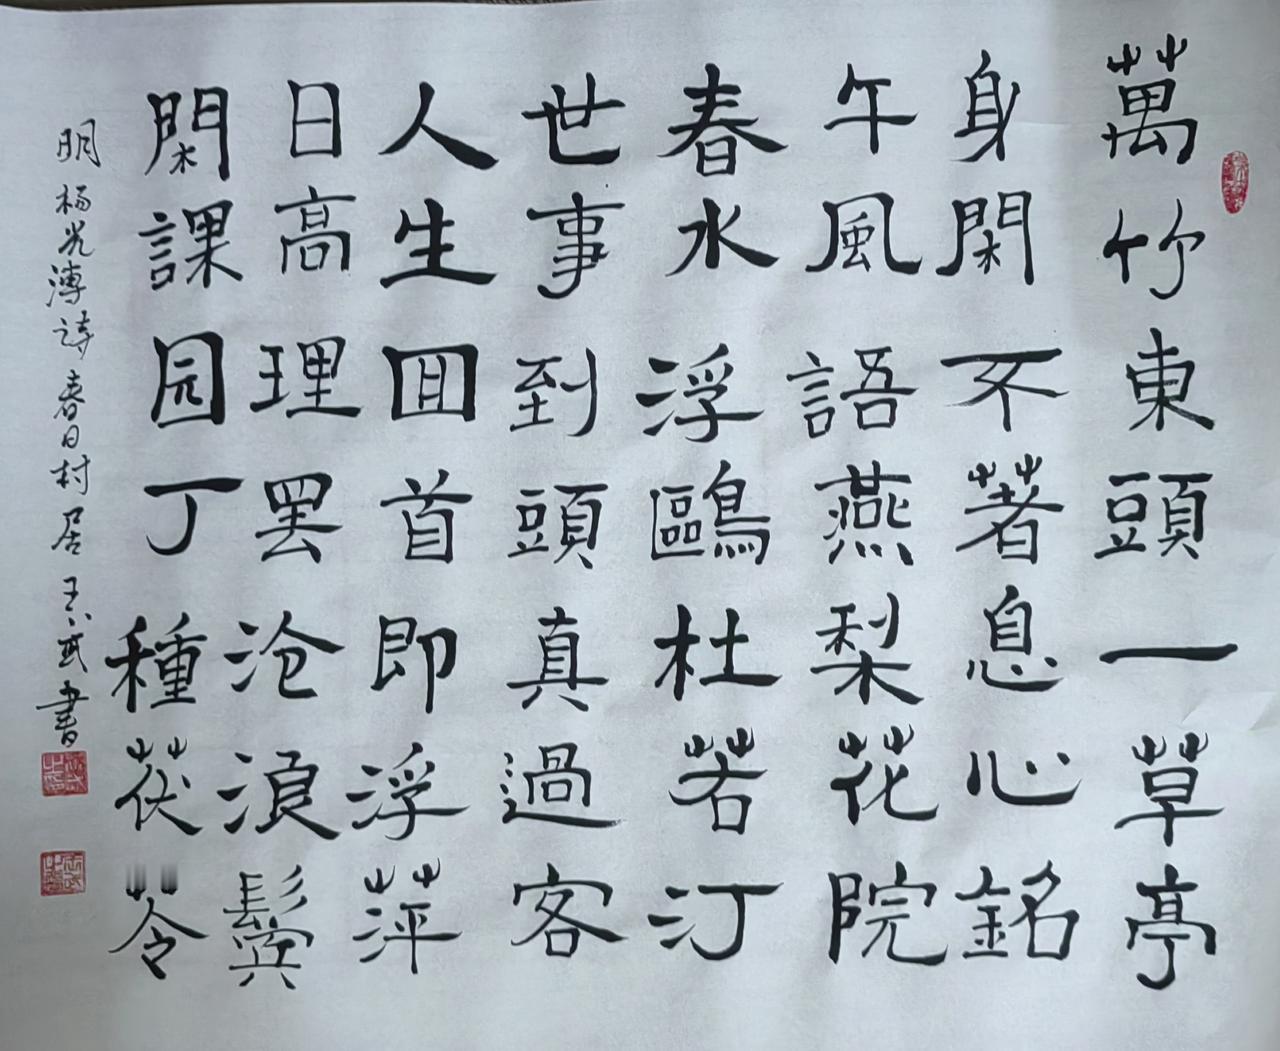 萬竹東頭一草亭
身閑不著息心銘
午風語燕梨花院
春水浮鷗杜若汀
世事到頭真過客
人生囬首即浮萍
日高理罢沧浪鬓
閑課园丁種茯苓
明杨光溥诗春日村居王八武書